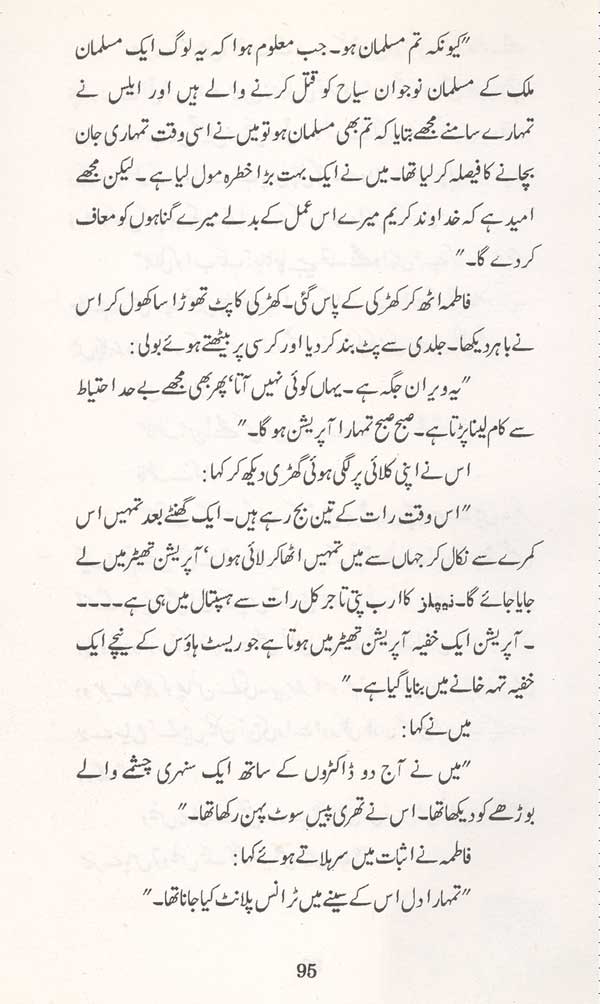 "کیونکہ تم مسلمان ہو۔ جب معلوم ہوا کہ یہ لوگ ایک مسلمان
ملک کے مسلمان نوجوان سیاح کو قتل کرنے والے ہیں اور ایلس نے
تمہارے سامنے مجھے بتایا کہ تم بھی مسلمان ہو تو میں نے اسی وقت تمہاری جان
بچانے کا فیصلہ کر لیا تھا۔ میں نے ایک بہت بڑا خطرہ مول لیا ہے۔ لیکن مجھے
امید ہے کہ خداوند کریم میرے اس عمل کے بدلے میرے گناہوں کو معاف
کر دے گا۔"
فاطمہ اٹھ کر کھڑکی کے پاس گئی۔ کھڑکی کا پٹ تھوڑا سا کھول کر اس
نے باہر دیکھا۔ جلدی سے پٹ بند کر دیا اور کرسی پر بیٹھتے ہوئے بولی:
"یہ ویران جگہ ہے۔ یہاں کوئی نہیں آتا' پھر بھی مجھے بے حد احتیاط
سے کام لینا پڑتا ہے۔ صبح صبح تمہارا آپریشن ہو گا۔"
اس نے اپنی کلائی پر لگی ہوئی گھڑی دیکھ کر کہا:
"اس وقت رات کے تین بج رہے ہیں۔ ایک گھنٹے بعد تمہیں اس
کمرے سے نکال کر جہاں سے میں تمہیں اٹھا کر لائی ہوں' آپریشن تھیٹر میں لے
جایا جائے گا۔ نیپلز کا ارب پتی تاجر کل رات سے ہسپتال میں ہی ہے۔۔۔۔
۔ آپریشن ایک خفیہ آپریشن تھیٹر میں ہوتا ہے جو ریسٹ ہاؤس کے نیچے ایک
خفیہ تہہ خانے میں بنایا گیا ہے۔"
میں نے کہا:
"میں نے آج دو ڈاکٹروں کے ساتھ ایک سنہری چشمے والے
بوڑھے کو دیکھا تھا۔ اس نے تھری پیس سوٹ پہن رکھا تھا۔"
فاطمہ نے اثبات میں سر ہلاتے ہوئے کہا:
"تمہارا دل اس کے سینے میں ٹرانس پلانٹ کیا جانا تھا۔"
95